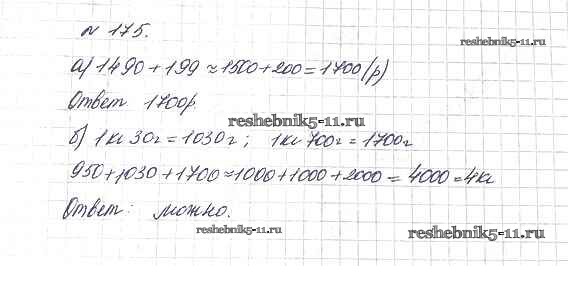 № 175.
reshebnik5-11.ru
а) 1490 + 199 ≈ 1500 + 200 = 1700 (р)
Ответ 1700р
reshebnik5-11.ru
б) 1 кг 30г = 1030 г ; 1кг 700г = 1700г
950 + 1030 + 1700 ≈ 1000 + 1000 + 2000 = 4000 = 4кг
Ответ: можно.
reshebnik5-11.ru
reshebnik5-11.ru